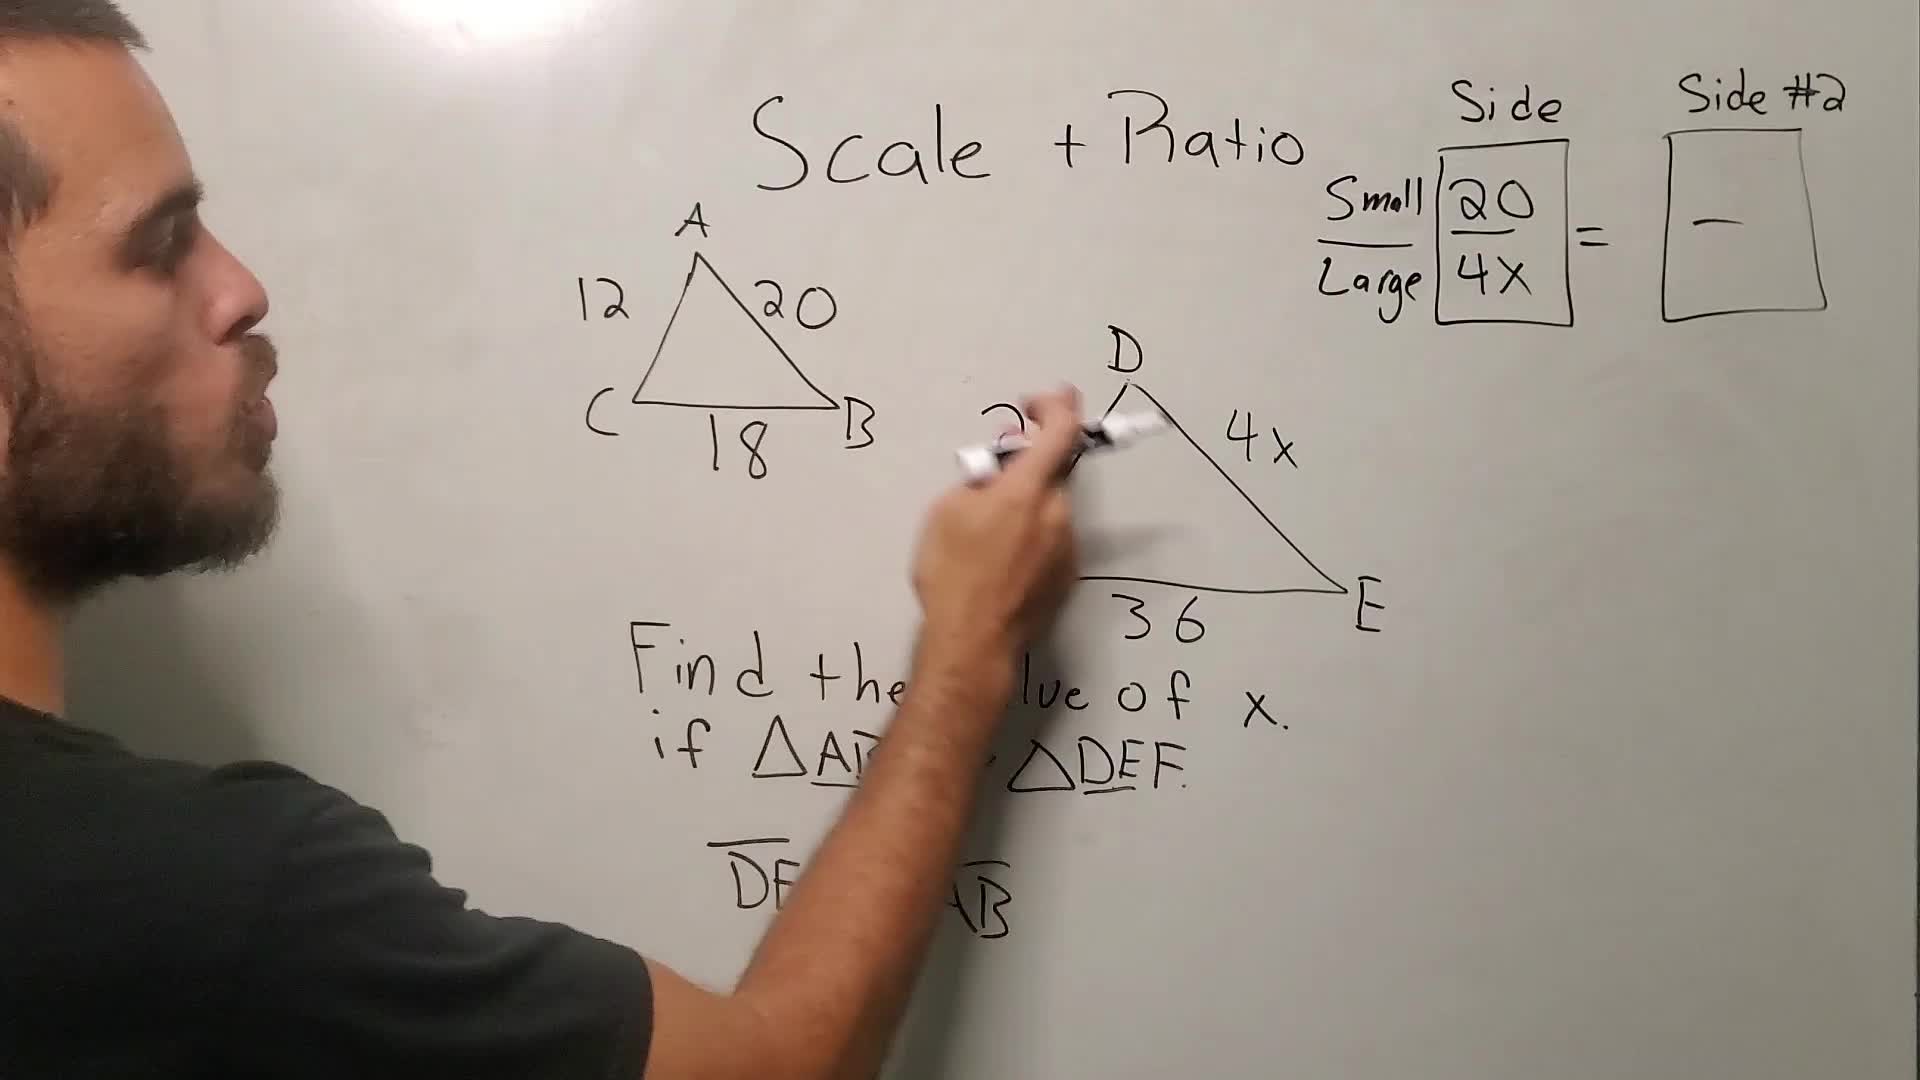 Scale + Ratio
Side
Side #2
Small
Large
20
4x
=
A
12
20
C
B
18
D
4x
E
36
Find the of x.
if △ △DEF.
AB